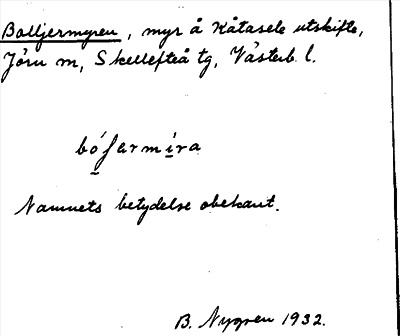 Bolljermyren, myr å Kåtasele utskifte,
Jörn sn, Skellefteå tg, Västerb. l.
bóʃermira
Namnets betydelse obekant.
B. Nygren 1932.